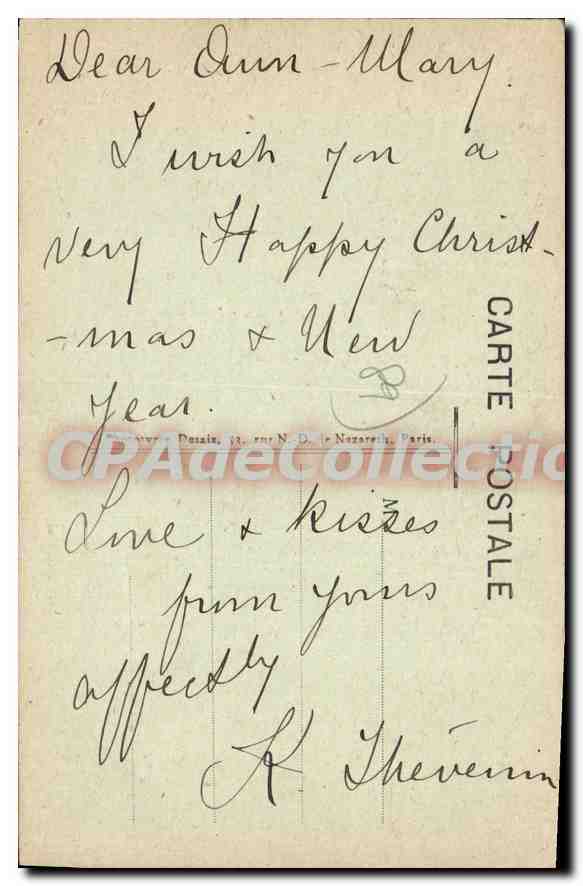 Dear Ann-Mary.
I wish you a
very Happy Christ-
-mas & New
Year.
Love & kisses
from yours
affectly
K. Thévenin
89
CARTE POSTALE
Desaix, 33, rue N.-D. de Nazareth, Paris.
M
CPAdeCollection